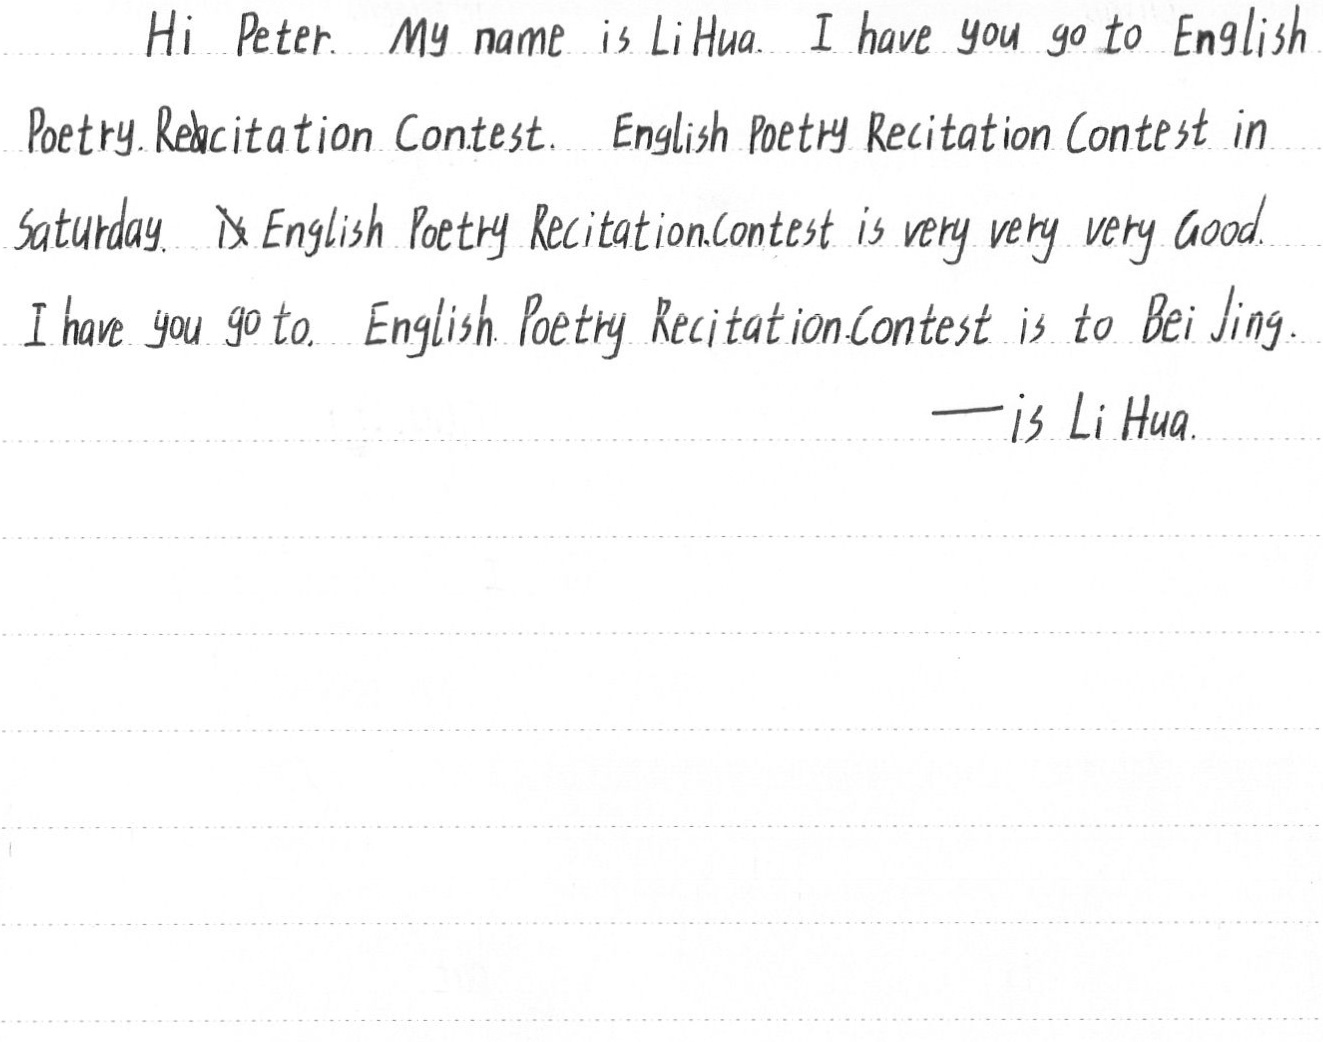 Hi Peter. My name is Li Hua. I have you go to English
Poetry. Recitation Contest. English Poetry Recitation Contest in
Saturday. English Poetry Recitation.Contest is very very very Good.
I have you go to. English Poetry Recitation.Contest is to Bei Jing.
—is Li Hua.